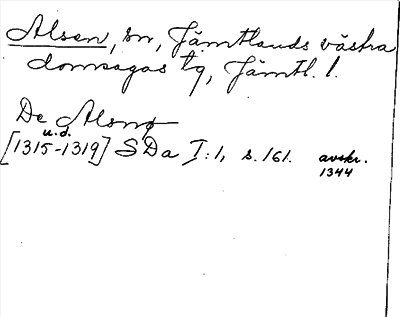 Alsen, sn, Jämtlands västra
domsagas tg, Jämtl. l.
De Alsnø
u.d.
[1315-1319] SDa I:1, s. 161. avskr.
1344